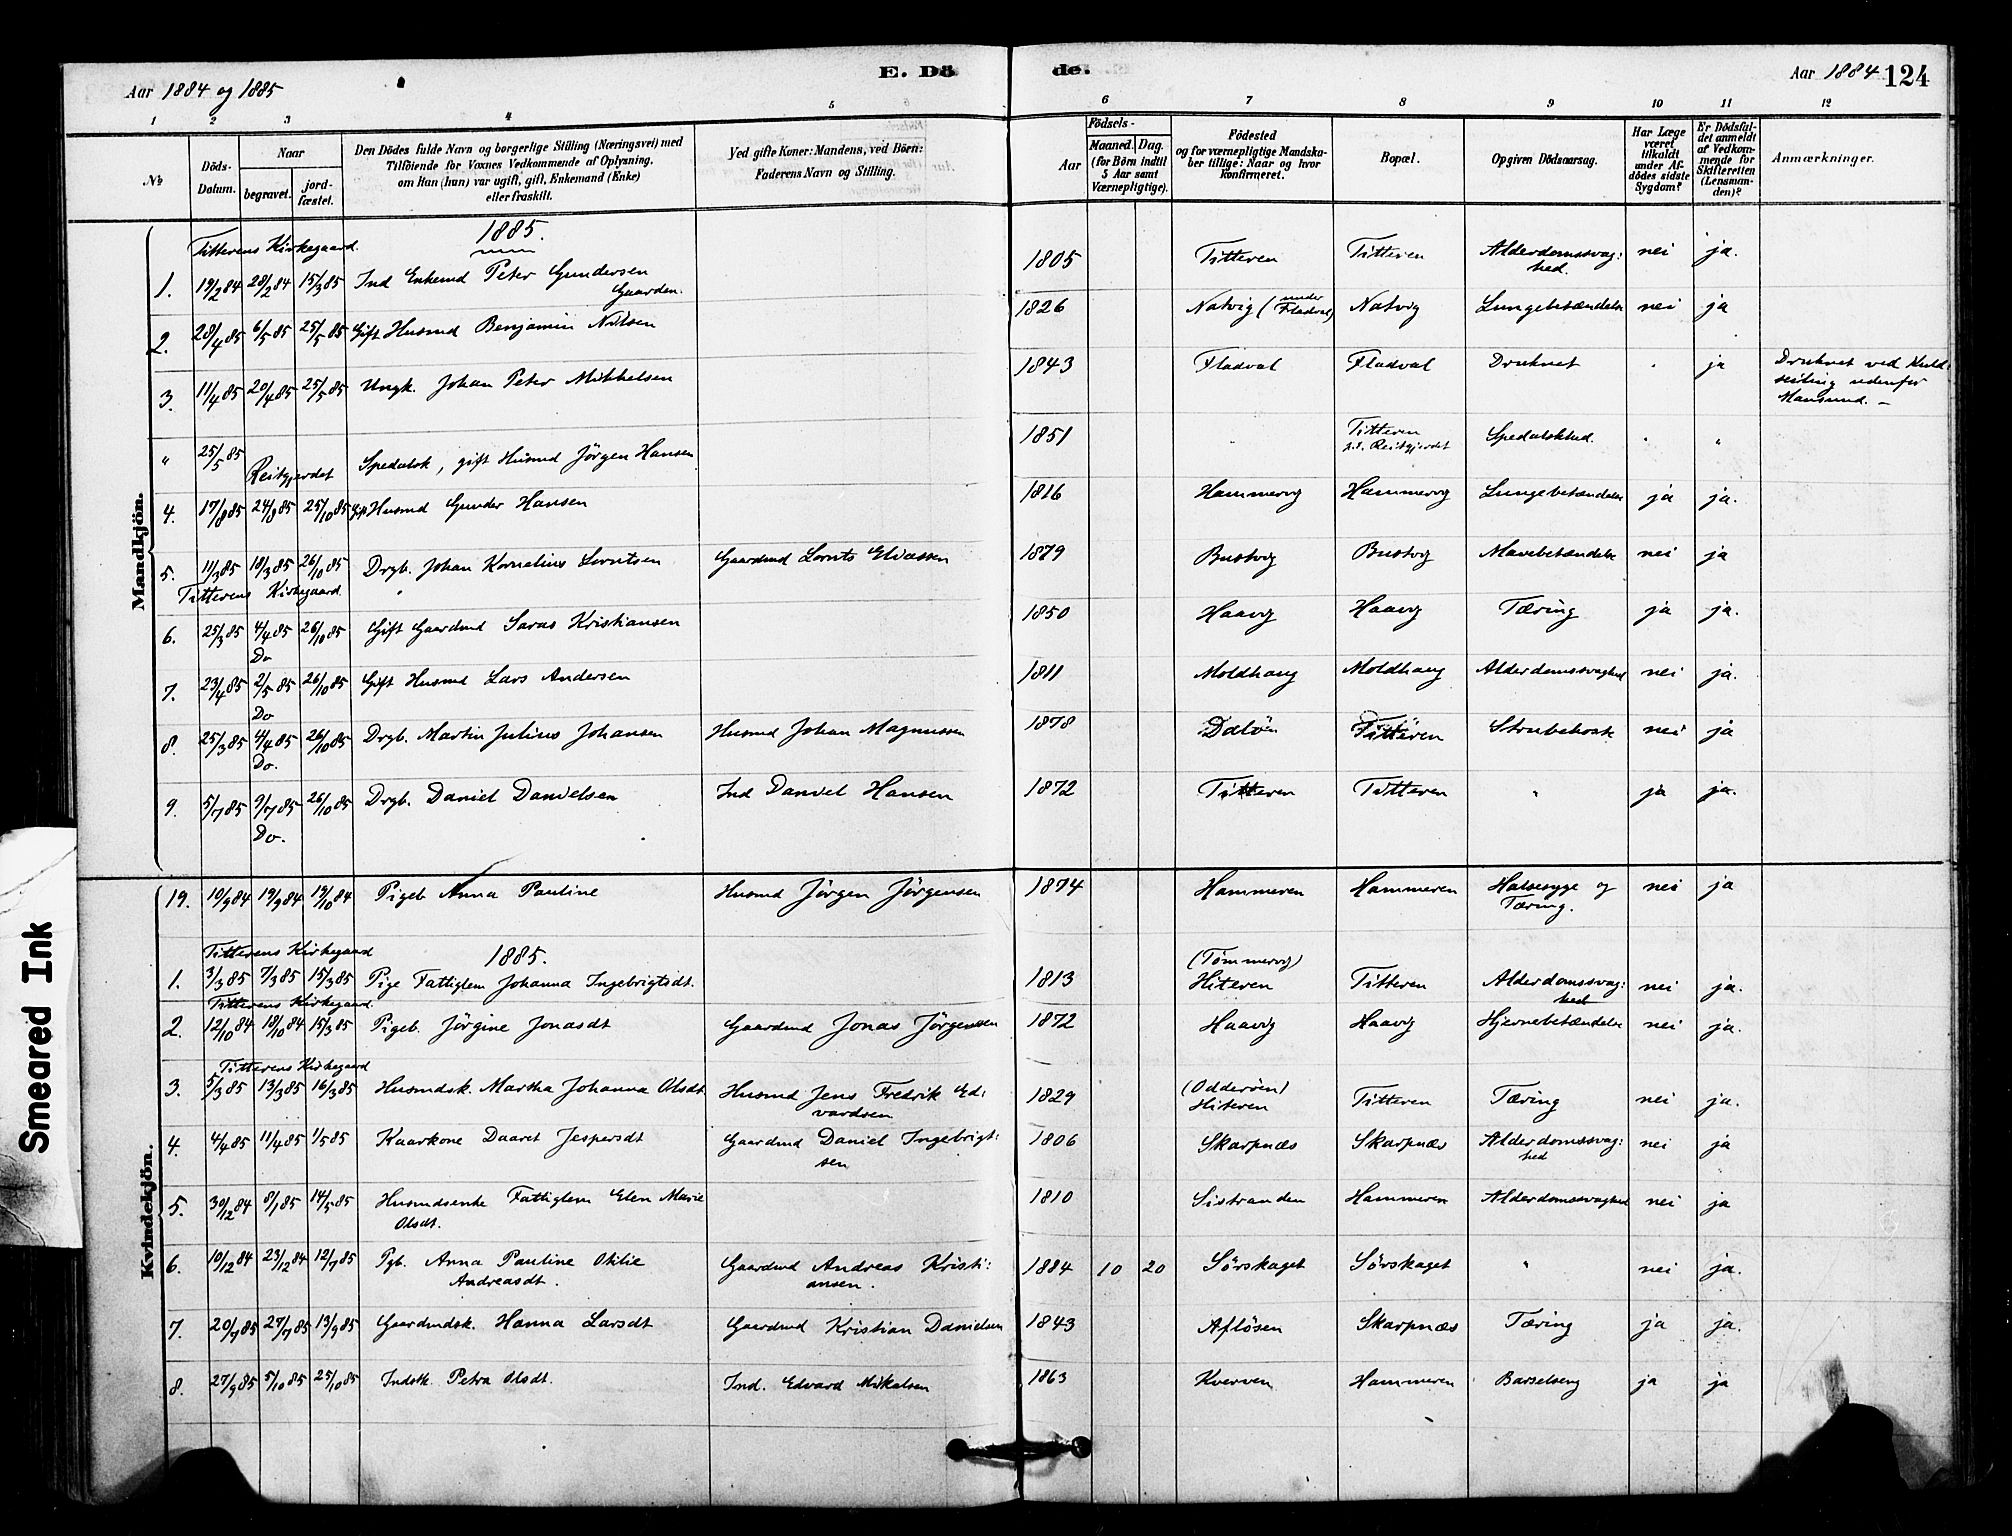 Aar 1884 og 1885
E. Dö
de.
Aar 1884 124
1 2 3 4 5 6 7 8 9 10 11 12
№
Döds-Datum.
Naar
begravet.
jord-fæstet.
Den Dödes fulde Navn og borgerlige Stilling (Næringsvei) med
Tilföiende for Voxnes Vedkommende af Oplysning,
om Han (hun) var ugift, gift, Enkemand (Enke)
eller fraskilt.
Ved gifte Koner: Mandens, ved Börn:
Faderens Navn og Stilling.
Födsels-
Aar
Maaned. Dag.
(for Börn indtil
5 Aar samt
Værnepligtige).
Födested
og for værnepligtige Mandska-
ber tillige: Naar og hvor
konfirmeret.
Bopæl.
Opgiven Dödsaarsag.
Har Læge
været
tilkaldt
under Af-
dödes sidste
Sygdom?
Er Dödsfal-
det anmeldt
af Vedkom-
mende for
Skifteretten
(Lensman-
den)?
Anmærkninger.
Mandkjön.
Titterens Kirkegaard. 1885.
1. 19/2 84 28/2 84 15/3 85 Ind Enkemd Peter Gundersen Gaarden. 1805 Titteren Titteren Alderdomssvag:hed. nei ja.
2. 28/4 85 6/5 85 25/5 85 Gift Husmd Benjamin Nilsen 1826 Natvig (under Fladval) Natvig Lungebetændelse nei ja
3. 11/4 85 20/4 85 25/5 85 Ungk. Johan Peter Mikkelsen 1843 Fladval Fladval Druknet . ja Druknet ved Kuld:
seiling udenfor
Mausund. –
" 25/5 85 Reitgjerdet Spedalsk, gift Husmd Jörgen Hansen 1851 Titteren p.t. Reitgjerdet Spedalskhed. . "
4. 17/8 85 24/8 85 25/10 85 Gift Husmd Gunder Hansen 1816 Hammervig Hammervig Lungebetændelse ja ja.
5. 11/3 85 18/3 85 26/10 85 Drgb. Johan Kornelius Lorntsen Gaardmd Lornts Eliassen 1879 Bustvig Bustvig Mavebetændelse nei ja
Titterens Kirkegaard.
6. 25/3 85 4/4 85 26/10 85 Gift Gaardmd Saras Kristiansen 1850 Haavig Haavig Tæring ja ja.
Do
7. 23/4 85 2/5 85 26/10 85 Gift Husmd Lars Andersen 1811 Moldhaug Moldhaug Alderdomssvaghed nei ja.
Do
8. 25/3 85 4/4 85 26/10 85 Drgb. Martin Julius Johansen Husmd Johan Magnussen 1878 Dolöen Titteren Strubehoste nei ja
Do.
9. 5/7 85 9/7 85 26/10 85 Drgb. Daniel Danielsen Ind Daniel Hansen 1872 Titteren Titteren " ja ja.
Do.
Kvindekjön.
19. 10/9 84 19/9 84 19/10 84 Pigeb Anna Pauline Husmd Jörgen Jörgensen 1874 Hammeren Hammeren Halsesyge og Tæring. nei ja
Titterens Kirkegaard 1885.
1. 3/3 85 7/3 85 15/3 85 Pige Fattiglem Johanna Ingebrigtsdt. 1813 (Tömmervig) Hiteren Titteren Alderdomssvag:hed nei ja.
Titterens Kirkegaard.
2. 12/10 84 18/10 84 15/3 85 Pigeb. Jörgine Jonasdt Gaardmd Jonas Jörgensen 1872 Haavig Haavig Hjernebetændelse nei ja.
Titterens Kirkegaard
3. 5/3 85 13/3 85 16/3 85 Husmdsk. Martha Johanna Olsdt Husmd Jens Fredrik Ed:vardsen 1829 (Odderöen) Hiteren Titteren Tæring nei ja.
4. 4/4 85 11/4 85 1/5 85 Kaarkone Daaret Jespersdt Gaardmd Daniel Ingebrigt:sen 1806 Skarpnæs Skarpnæs Alderdomssvag:hed nei ja
5. 30/12 84 8/1 85 14/5 85 Husmdsenke Fattiglem Elen Marie Olsdt. 1810 Sistranden Hammeren Alderdomssvaghed nei ja
6. 10/12 84 23/12 84 12/7 85 Pgb. Anna Pauline Otilie Andreasdt. Gaardmd Andreas Kristi:ansen. 1884 10 20 Sörskaget Sörskaget " nei ja.
7. 20/7 85 27/7 85 13/9 85 Gaardmdsk. Hanna Larsdt Gaardmd Kristian Danielsen 1843 Aflösen Skarpnæs Tæring ja ja.
8. 27/9 85 5/10 85 25/10 85 Indstk. Petra Olsdt. Ind. Edvard Mikalsen 1863 Kverven Hammeren Barselseng ja ja
Smeared Ink